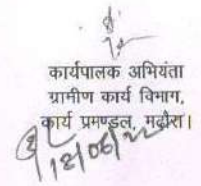 कार्यपालक अभियंता
ग्रामीण कार्य विभाग,
कार्य प्रमण्डल, मढ़ौरा।